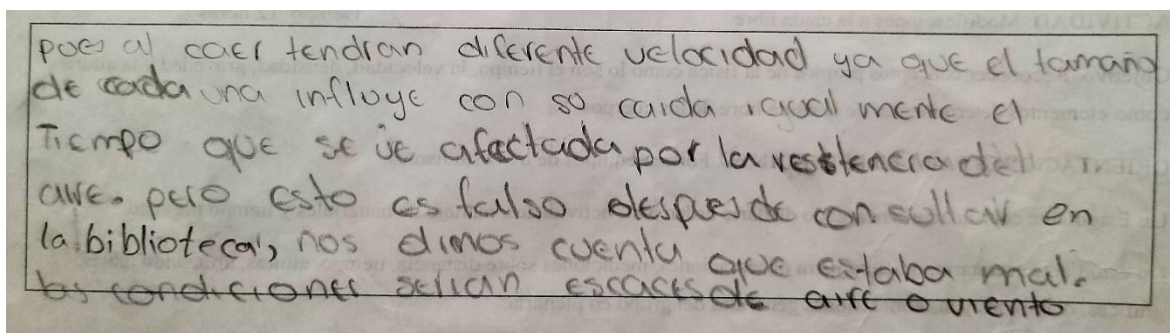 pues al caer tendran diferente velocidad ya que el tamaño
de cada una influye con su caida igual mente el
Tiempo que se ve afectada por la resistencia del
aire. pero esto es falso despues de consultar en
la biblioteca, nos dimos cuenta que estaba mal.
las condiciones serian escaces de aire o viento